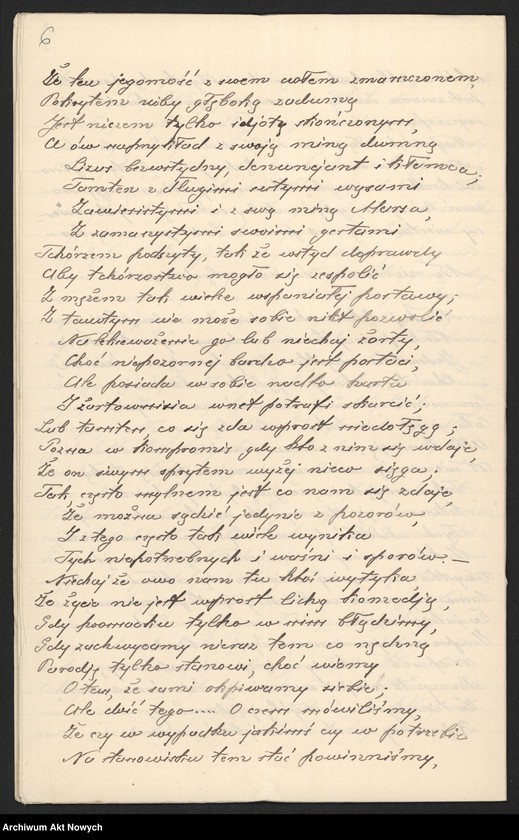 6
Że ten jegomość z swem czołem zmarszczonem,
Pokrytem niby głęboką zadumą
Jest niczem tylko idjotą skończonym,
A ów naprzykład z swoją miną dumną
Lizus bezwstydny, denuncjant i kłamca;
Tamten z długimi sutymi wąsami
Zawiesistymi i z swą miną Marsa,
Z zamaszystymi swoimi gestami
Tchórzem podszyty, tak że wstyd doprawdy
Aby tchórzostwo mogło się zespolić
Z mężem tak wielce wspaniałej postawy;
Z tamtym nie może sobie nikt pozwolić
Na lekceważenie go lub niechaj żarty,
Choć niepozornej bardzo jest postaci,
Ale posiada w sobie nadto hartu
I żartownisia wnet potrafi skarcić;
Lub tamten co się zda wprost niedołęgą;
Pozna w kompromis gdy kto z nim się wdaje,
Że on swym sprytem wyżej nieco sięga;
Tak często mylnem jest co nam się zdaje,
Że można sądzić jedynie z pozorów,
I z tego często tak wiele wynika
Tych niepotrzebnych i waśni i sporów. —
Niechaj że owo nam tu ktoś wytyka
Że życie nie jest wprost lichą komedją,
Gdy poomacku tylko w nim błądzimy,
Gdy zachwycamy nieraz tem co nędzną
Parodją tylko stanowi, choć wiemy
O tem, że sami okpiwamy siebie;
Ale dość tego .... O czem mówiliśmy,
Że czy w wypadku jakimś czy w potrzebie
Na stanowisku tem stać powinniśmy,
Archiwum Akt Nowych